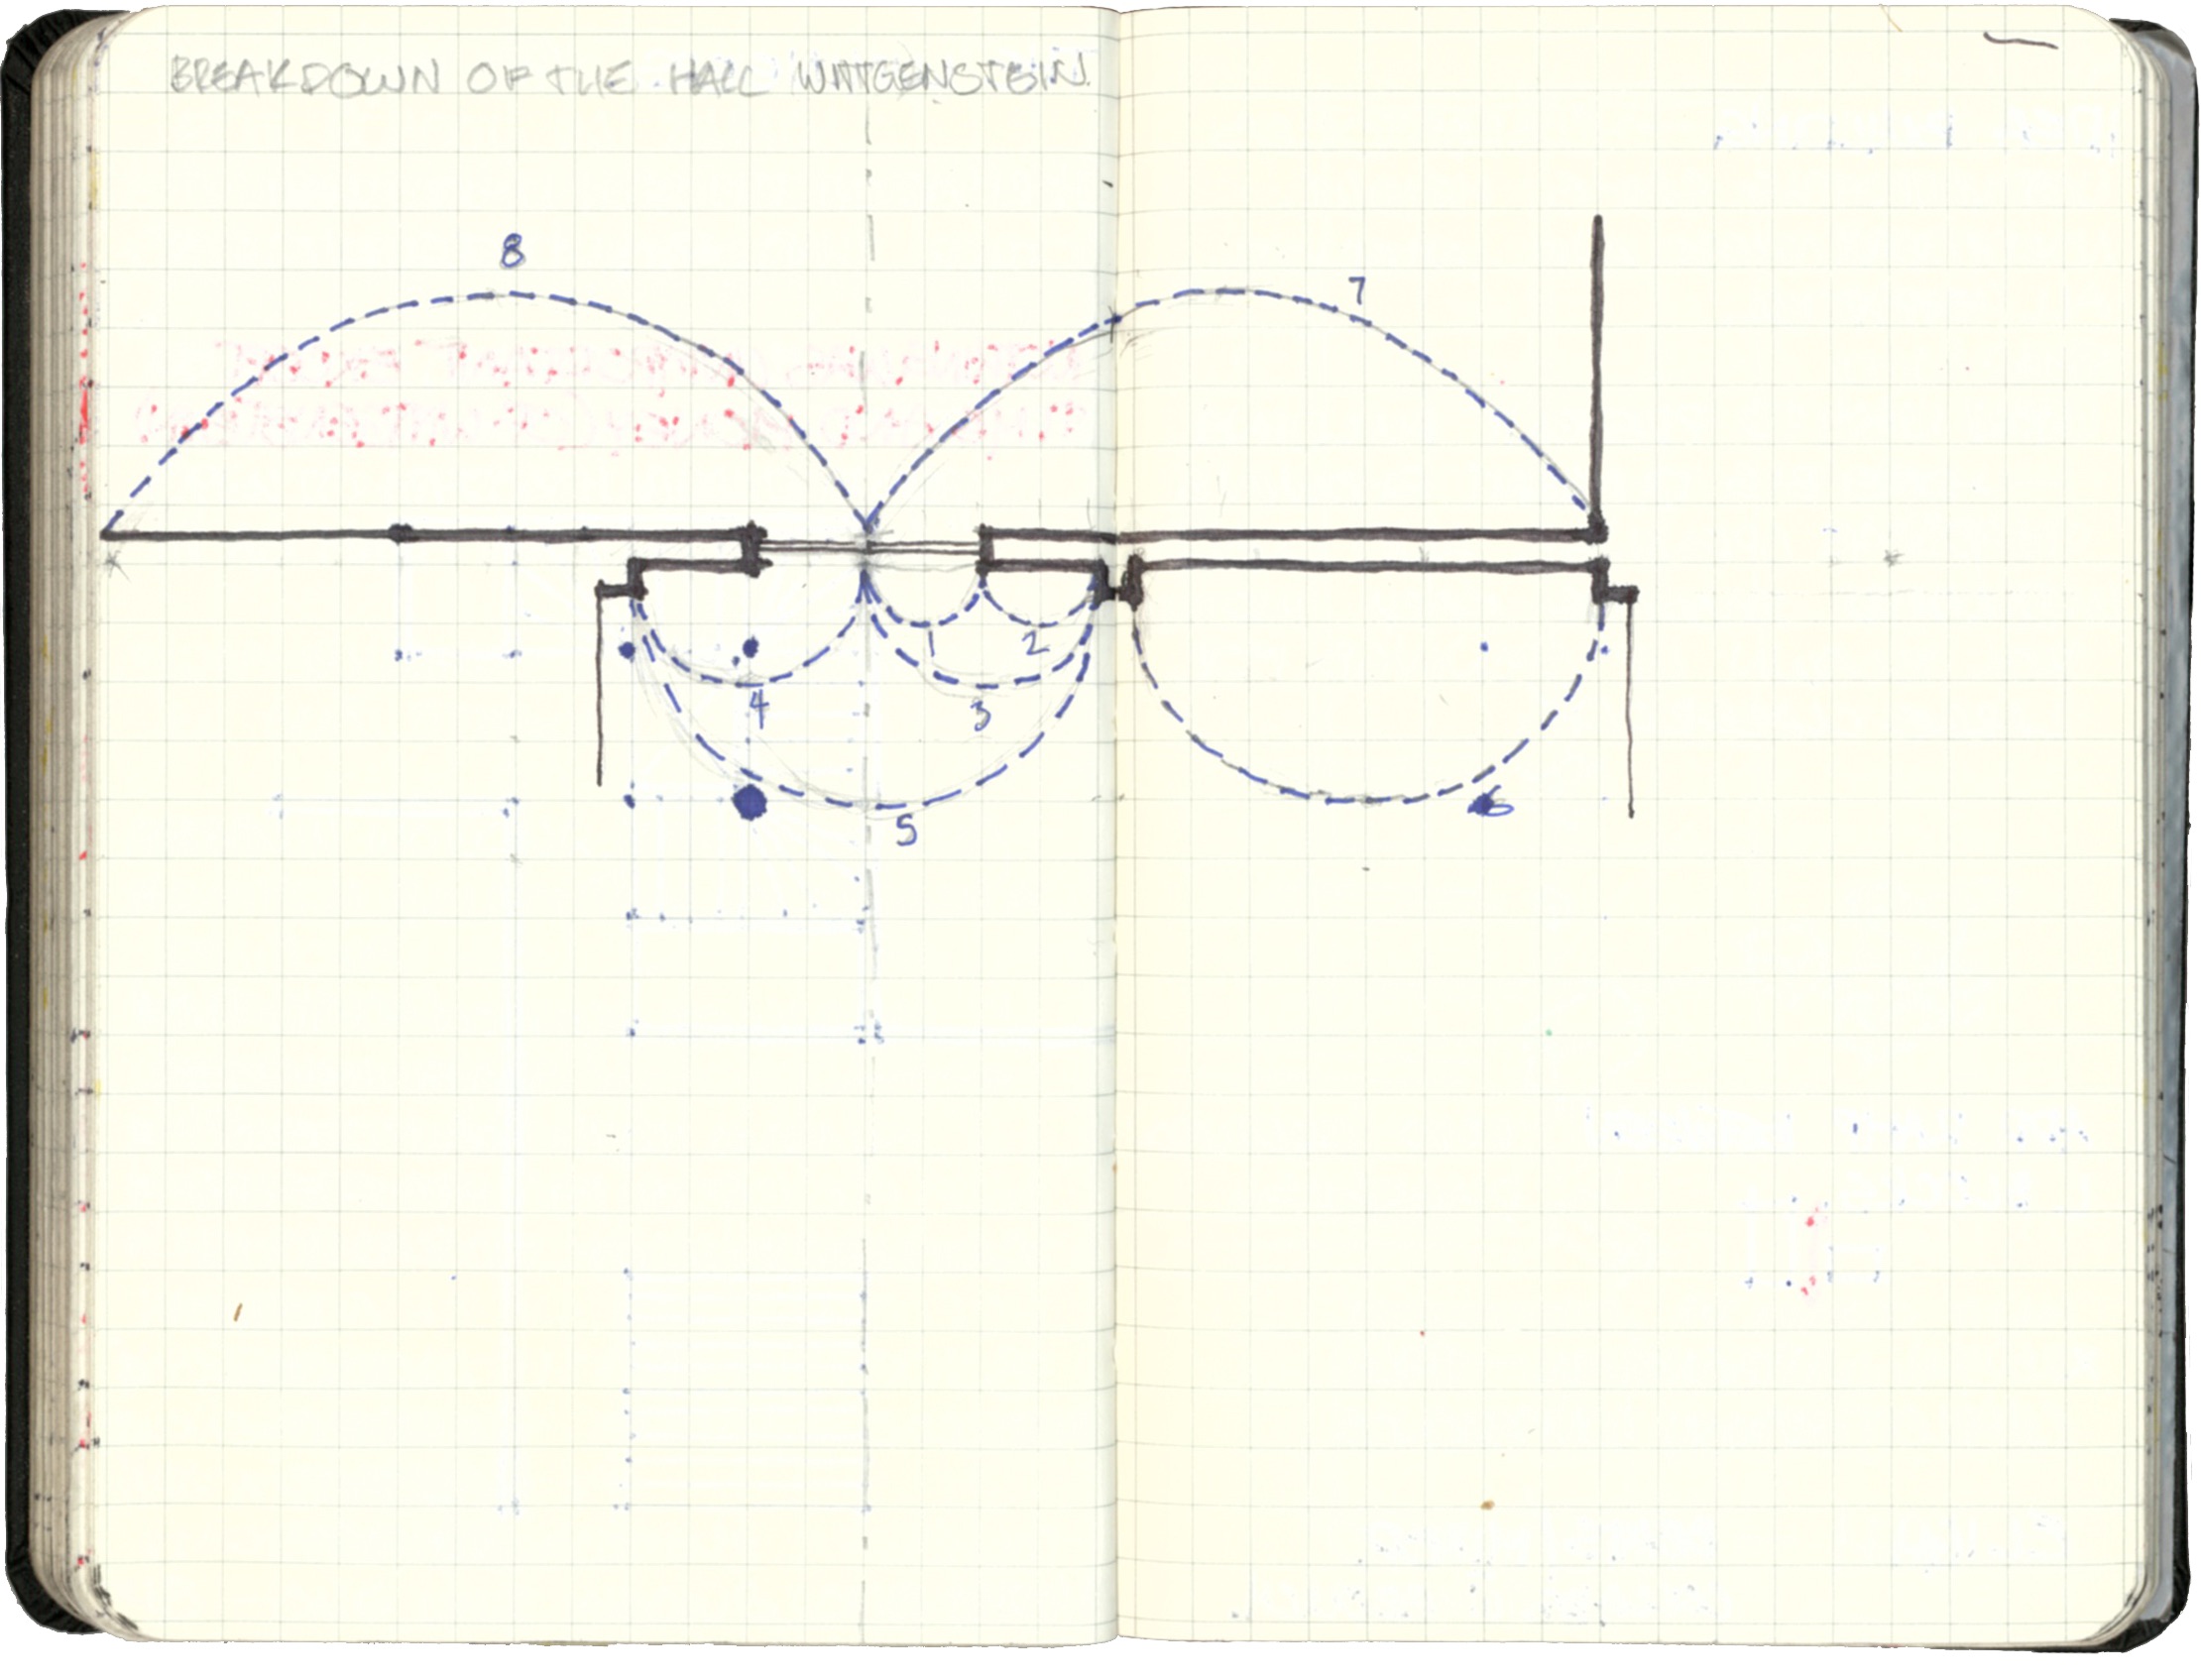 BREAKDOWN OF THE HALL WITTGENSTEIN.
8
7
1
2
4
3
5
6